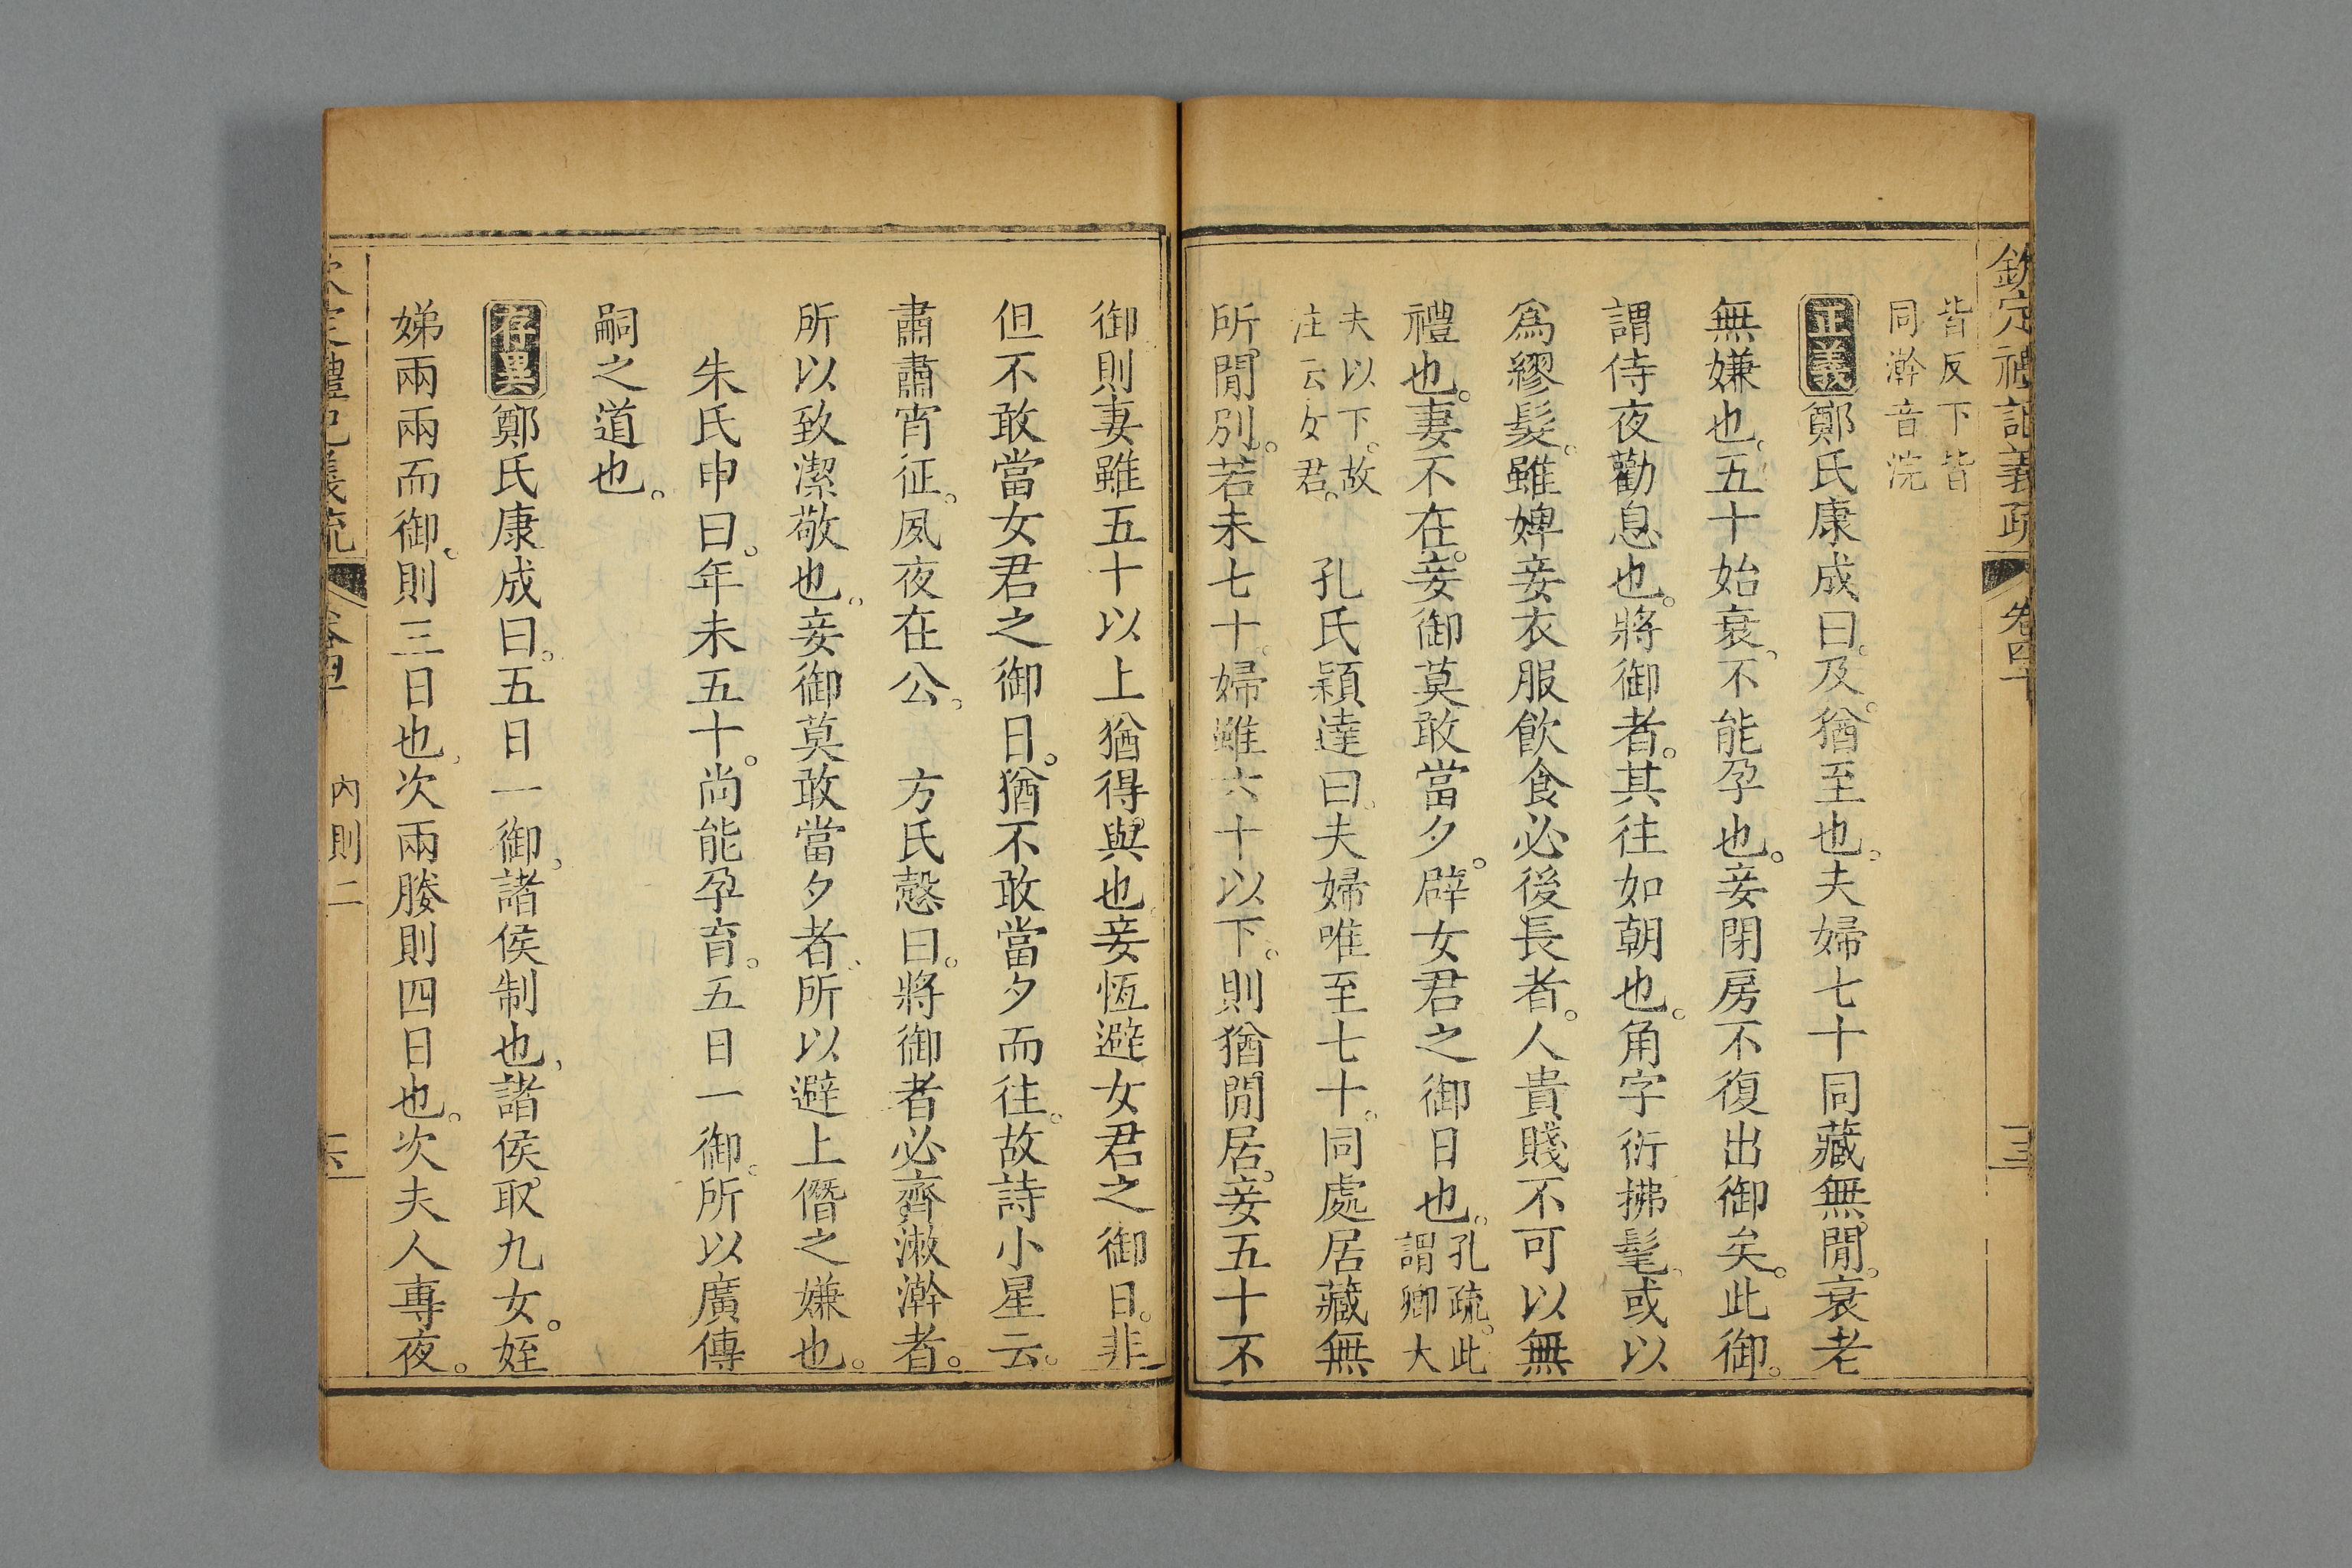 欽定禮記義疏 卷四十 
皆反下皆
同澣音浣
正義鄭氏康成曰。及。猶至也。夫婦七十同藏無閒。衰老
無嫌也。五十始衰、不能孕也。妾閉房不復出御矣。此御。
謂侍夜勸息也。將御者。其往如朝也。角字衍拂髦、或以
爲繆髮。雖婢妾衣服飲食必後長者。人貴賤不可以無
禮也。妻不在。妾御莫敢當夕。辟女君之御日也。孔疏。此謂卿大
夫以下。故注云女君。 孔氏穎達曰。夫婦唯至七十。同處居藏無
所閒別。若未七十。婦雖六十以下。則猶閒居。妾五十不
御則妻雖五十以上猶得與也妾恆避女君之御日。非
但不敢當女君之御日。猶不敢當夕而往。故詩小星云。
肅肅宵征。夙夜在公。 方氏慤曰。將御者必齊漱澣者。
所以致潔敬也。妾御莫敢當夕者、所以避上僭之嫌也。
朱氏申曰。年未五十。尚能孕育。五日一御。所以廣傳
嗣之道也。
存異鄭氏康成曰。五日一御、諸侯制也、諸侯取九女。姪
娣兩兩而御。則三日也、次兩媵則四日也。次夫人專夜。
欽定禮記義疏 卷四十 內則二